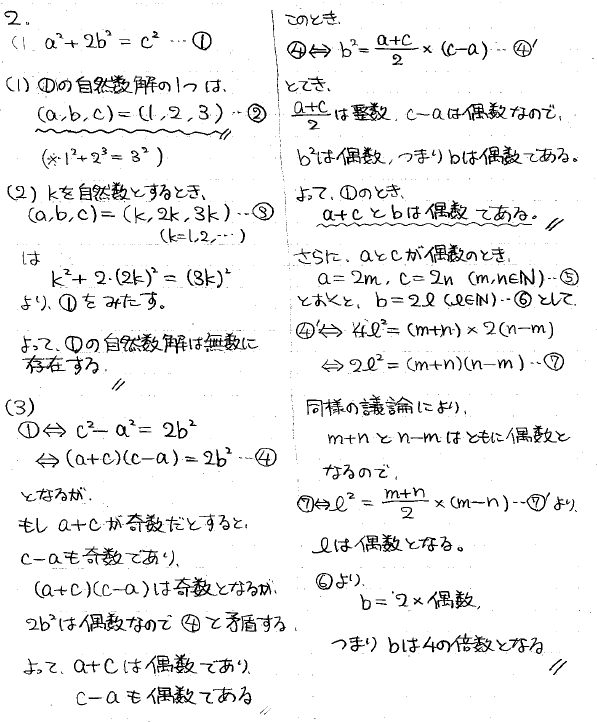 2.
(1. a²+2b²=c² ‥①
(1) ①の自然数解の1つは、
(a,b,c)=(1,2,3)‥②
(※1²+2³=3²)
(2) kを自然数とするとき、
(a,b,c)=(k,2k,3k)‥③
(k=1,2,…)
は
k²+2・(2k)²=(3k)²
より、①をみたす。
よって、①の自然数解は無数に
存在する。
(3)
①⇔ c²-a²=2b²
⇔(a+c)(c-a)=2b²‥④
となるが、
もし a+cが奇数だとすると、
c-aも奇数であり、
(a+c)(c-a)は奇数となるが、
2b²は偶数なので ④と矛盾する。
よって、a+cは偶数であり、
c-aも偶数である
このとき、
④⇔ b²=(a+c)/2×(c-a)‥④′
とでき、
(a+c)/2は整数、c-aは偶数なので、
b²は偶数、つまりbは偶数である。
よって、①のとき、
a+cとbは偶数である。
さらに、aとcが偶数のとき、
a=2m, c=2n (m,n∈ℕ)‥⑤
とおくと、b=2l (l∈ℕ)‥⑥として
④′⇔ 4l²=(m+n)×2(n-m)
⇔ 2l²=(m+n)(n-m)‥⑦
同様の議論により、
m+nとn-mはともに偶数と
なるので、
⑦⇔l²=(m+n)/2×(m-n)‥⑦′より、
lは偶数となる。
⑥より、
b=2×偶数、
つまりbは4の倍数となる